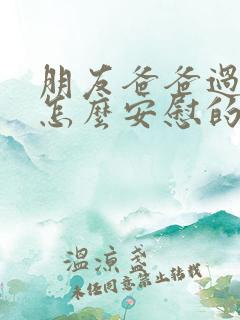 朋友爸爸過
怎麼安慰的
溫涼盞
未经同意禁止转载